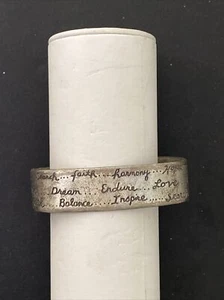 ... faith ... Harmony ...
Dream ... Endure ... Love
Balance ... Inspire ...